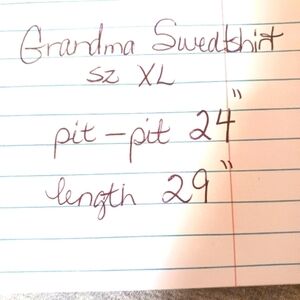 Grandma Sweatshirt
sz XL
pit-pit 24"
length 29"